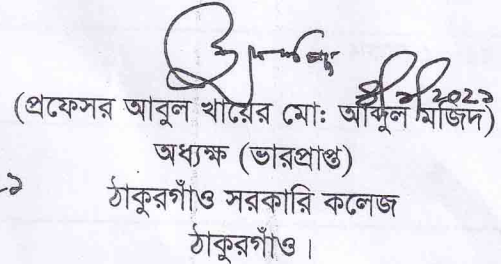 (প্রফেসর আবুল খায়ের মো: আব্দুল মজিদ)
অধ্যক্ষ (ভারপ্রাপ্ত)
ঠাকুরগাঁও সরকারি কলেজ
ঠাকুরগাঁও।